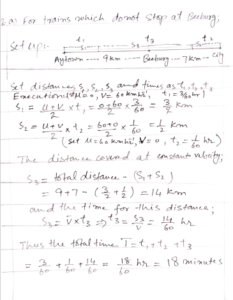 2.a) For trains which do not stop at Beeburg;
Set up:
t₁ s₃ t₃ t₂
Aytown ---- 9km --- Beeburg --- 7km --- City
Set distances s₁, s₂, s₃ and times as t₁, t₂, t₃
u=0, V=60kmh⁻¹, t₁=
S₁ = u+v/2 × t₁ = 0+60/2 × 3/60 = 3/2 km
S₂ = u+v/2 × t₂ = 60+0/2 × 1/60 = 1/2 km
(Set u=60kmh⁻¹, V=0, t₂ 1/60 hr)
The distance covered at constant velocity;
S₃ = total distance - (S₁+S₂)
= 9+7-(3/2+1/2) = 14km
and the time for this distance;
S₂= v × t₃ ⇒ t₃ = S₃/v = 14/60 hr
Thus the total time T = t₁ + t₂ + t₃
= 3/60 + 1/60 + 14/60 = 18/60 hr = 18 minutes